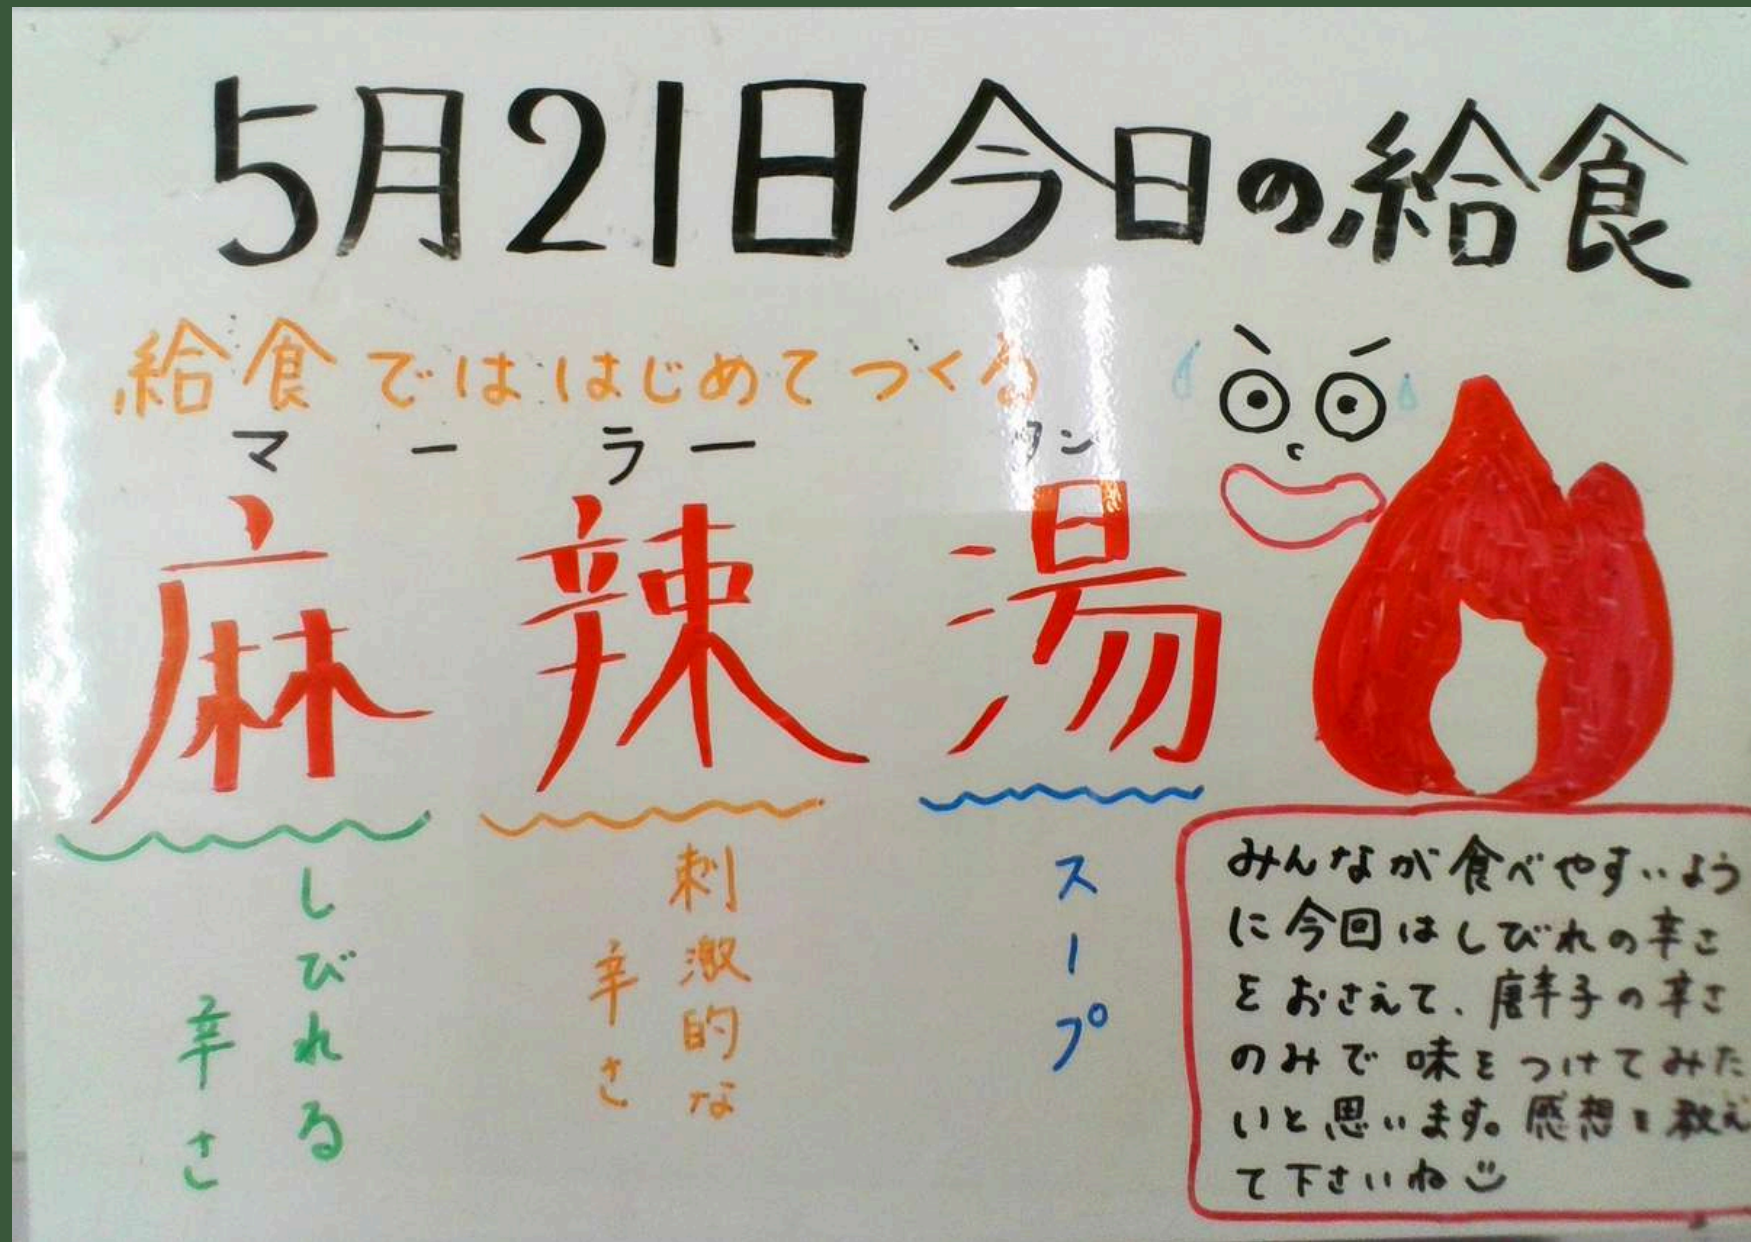 5月21日今日の給食
給食でははじめてつくる
マーラータン
麻辣湯
しびれる
辛さ
刺激的な
辛さ
スープ
みんなが食べやすいよう
に今回はしびれの辛さ
をおさえて、唐辛子の辛さ
のみで味をつけてみた
いと思います。感想を教え
て下さいね